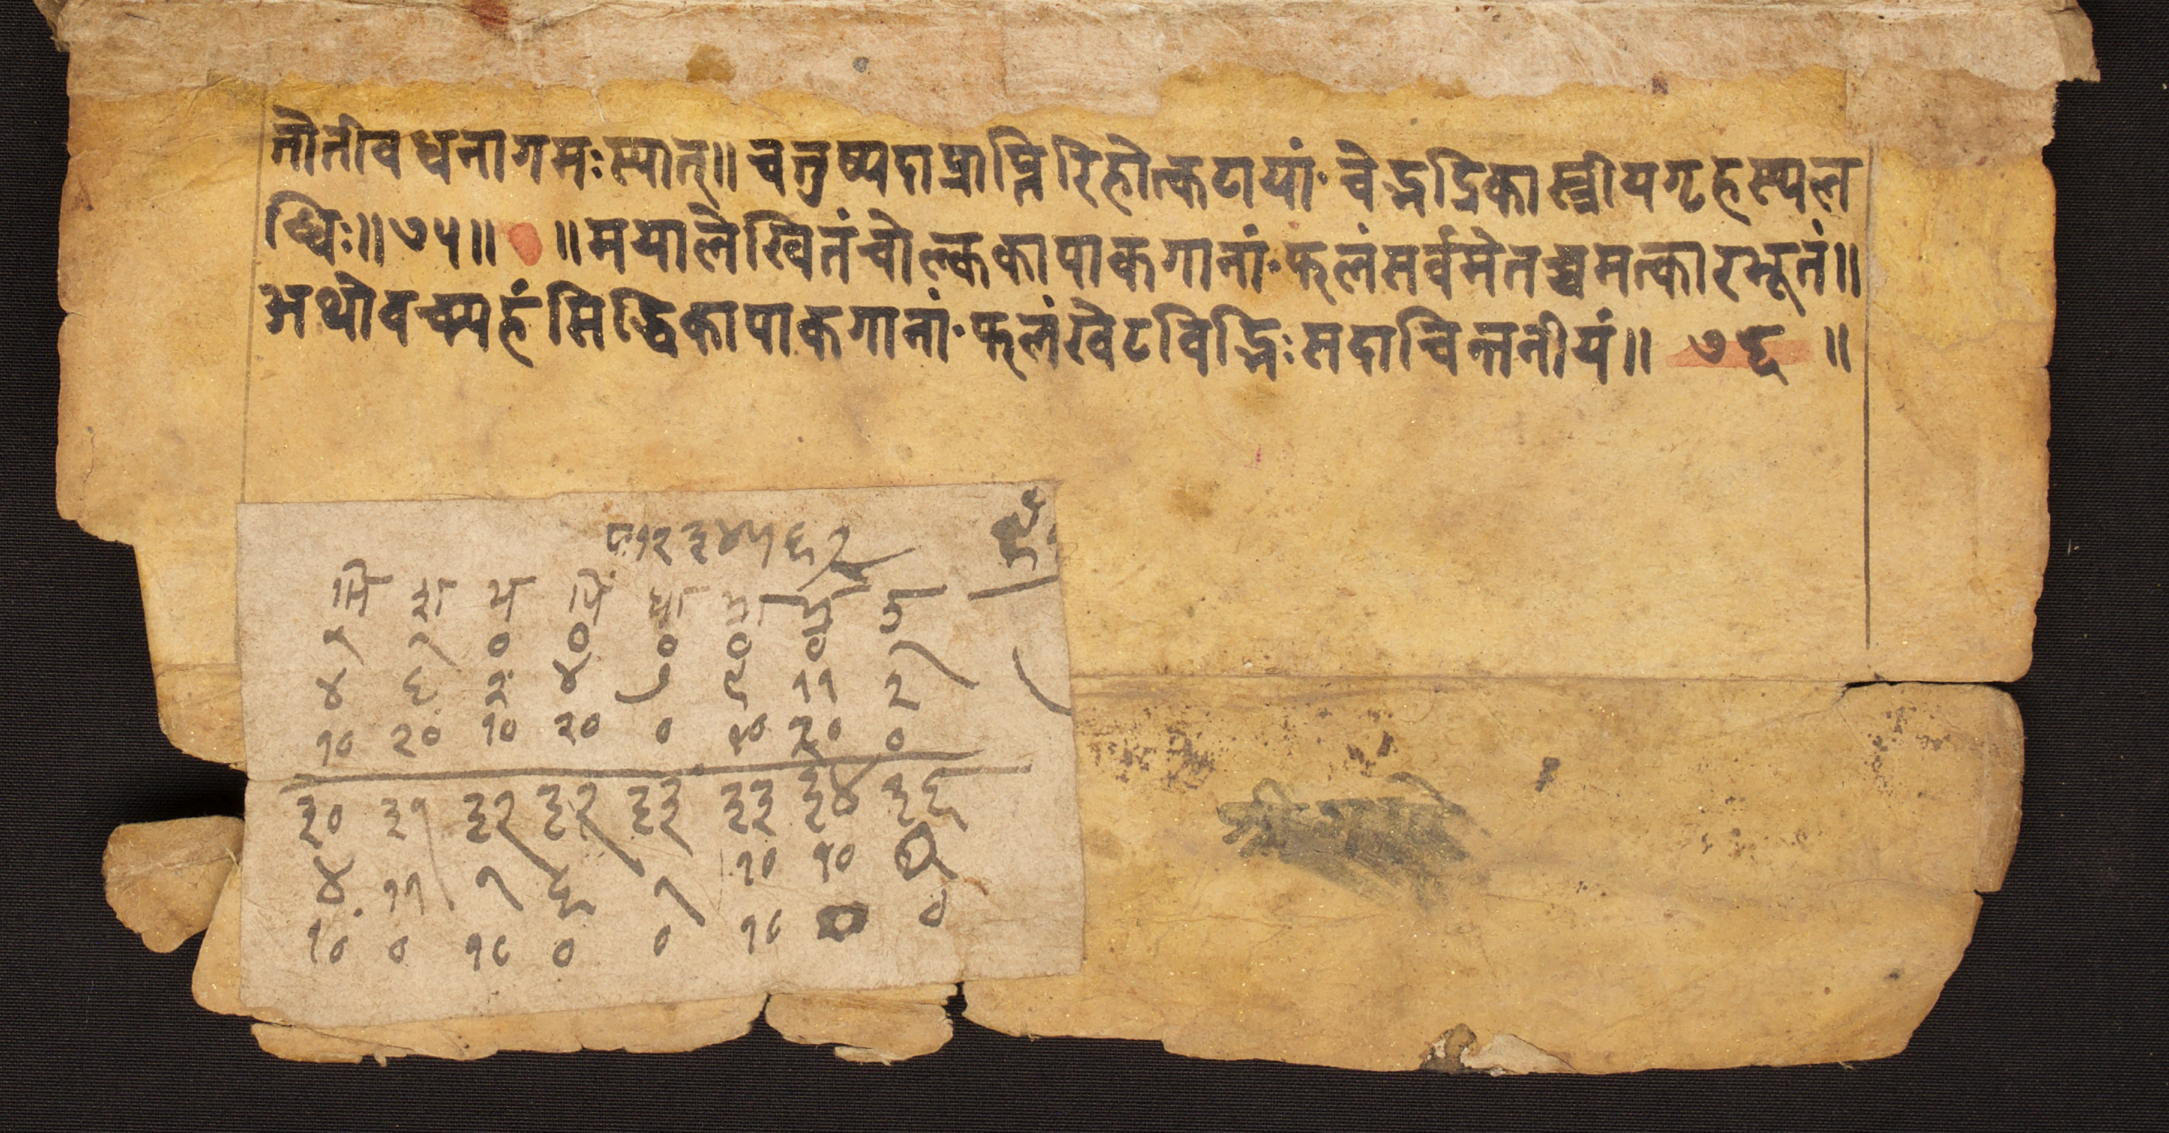 तोतीवधनागमःस्यात्॥ चतुष्पदाप्राप्तिरिहोत्कटायां· चेद्भद्रिकास्त्रीयगृहस्यल
ब्धिः॥७५॥ ॥मयालेखितंचोल्ककापाकगानां·फलंसर्वमेतच्चमत्कारभूतं॥
अथोवच्म्यहंसिद्धिकापाकगानां·फलंखेटविद्भिःसदाचिन्तनीयं॥ ७६ ॥
८१२३४५६२
० ० ० ० ०
४ ६ २ ४ ७ ९ ११ २
१० २० १० २० ० १० २० ०
३० ३१ ३२ ३२ ३३ ३३ ३४ ३६
४ ११ १ ६ १ १० १०
१० ० १० ० ० १० ०